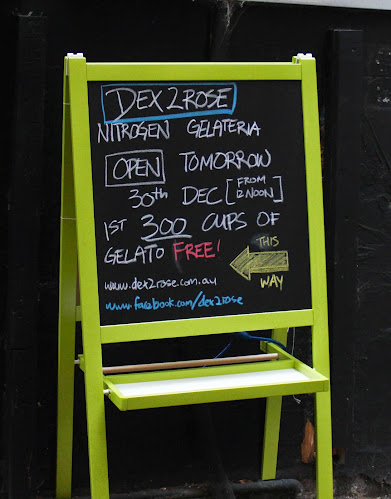 DEX2ROSE
NITROGEN GELATERIA
OPEN TOMORROW
30th DEC [FROM 12 NOON]
1ST 300 CUPS OF
GELATO FREE!
THIS
WAY
www.dex2rose.com.au
www.facebook.com/dex2rose